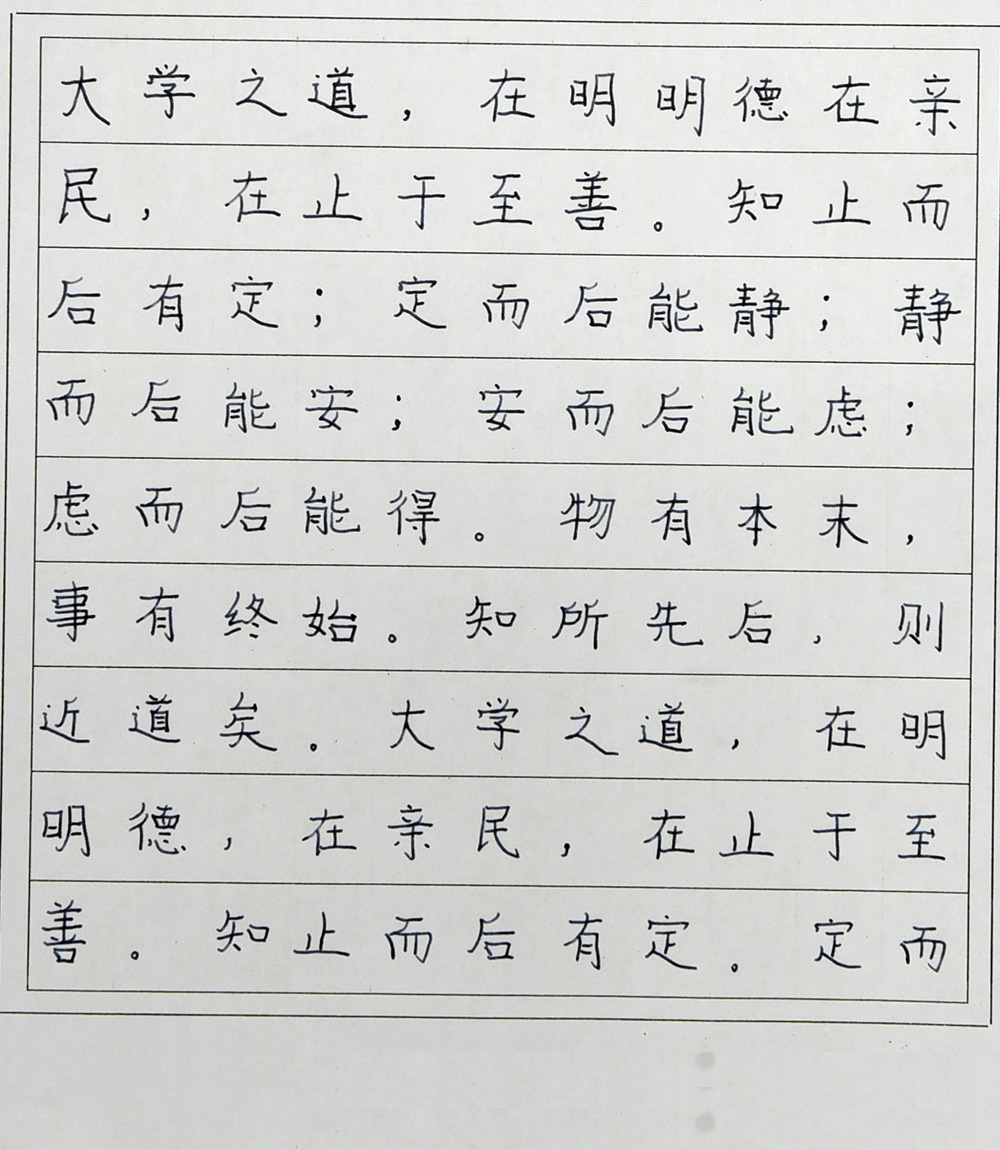 大学之道，在明明德在亲
民，在止于至善。知止而
后有定；定而后能静；静
而后能安；安而后能虑；
虑而后能得。物有本末，
事有终始。知所先后，则
近道矣。大学之道，在明
明德，在亲民，在止于至
善。知止而后有定。定而